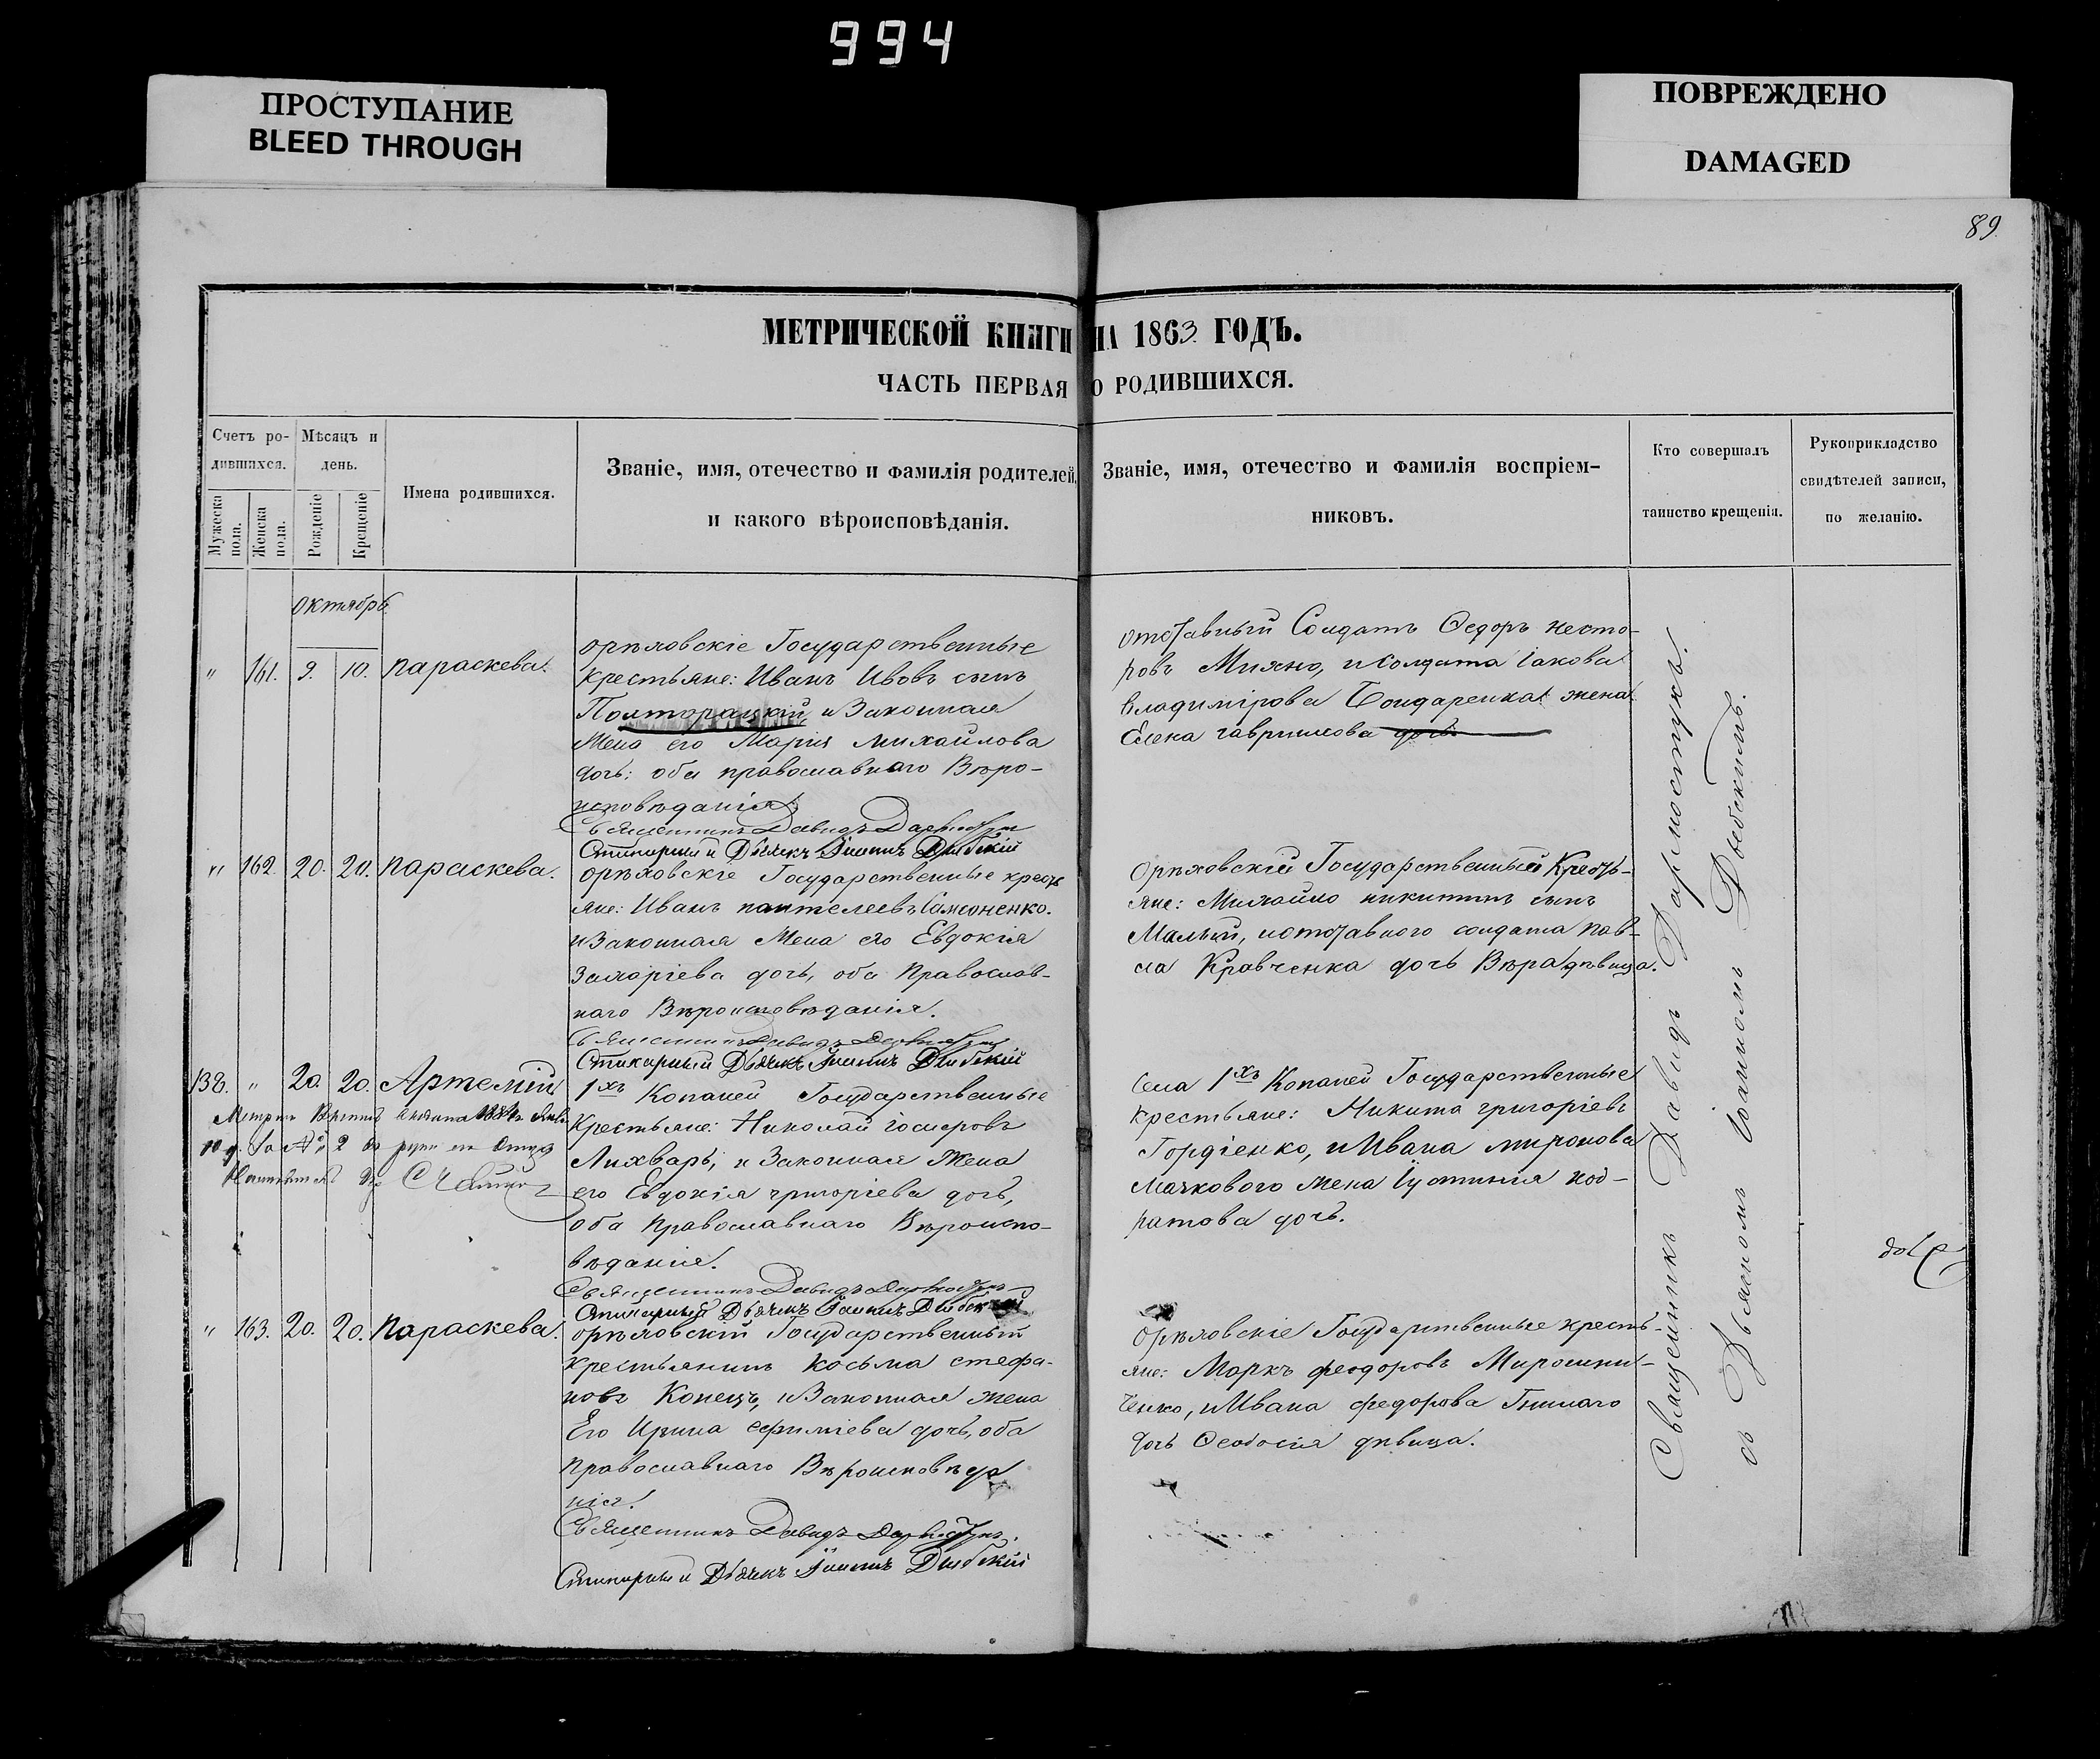 994
ПРОСТУПАНИЕ
BLEED THROUGH
ПОВРЕЖДЕНО
DAMAGED
89.
МЕТРИЧЕСКОЙ КНИГИ НА 1863 ГОДЪ.
ЧАСТЬ ПЕРВАЯ О РОДИВШИХСЯ.
Счетъ ро-
дившихся.
Мужеска пола.
Женска пола.
Мѣсяцъ и
день.
Рожденіе
Крещеніе
Имена родившихся.
Званіе, имя, отечество и фамилія родителей,
и какого вѣроисповѣданія.
Званіе, имя, отечество и фамилія воспріем-
никовъ.
Кто совершалъ
таинство крещенія.
Рукоприкладство
свидѣтелей записи,
по желанію.
октябрь
" 161. 9. 10. параскева.
орѣховскіе Государственные
крестьяне: Иванъ Ивовъ сынъ
Полторацкій и Законная
Жена его Марія михайлова
дочь: оба православнаго Вѣро-
исповѣданія
Священникъ Давидъ
Стихарный Дьячекъ
отставный Солдатъ Ѳедоръ несто-
ровъ Михно, и Солдата іакова
владимірова Бондаренка жена
Елена гаврилова дочь.
" 162. 20. 20. параскева.
орѣховскіе Государственные кресть
яне: Иванъ пантелеевъ Самсоненко.
и Законная Жена его Евдокія
Захаріева дочь, оба Православ-
наго Вѣроисповѣданія.
Священникъ Давидъ
Стихарный Дьячекъ
Орѣховскій Государственный Кресть-
яне: Михайло никитинъ сынъ
Малый, и отставного солдата Пав-
ла Кравченка дочь Вѣра дѣвица.
138. " 20. 20. Артемій
1хъ Копаней Государственные
Крестьяне: Николай
Лихварь, и Законная Жена
его Евдокія григоріева дочь,
оба Православнаго Вѣроиспо-
вѣданія.
Священникъ Давидъ
Стихарный Дьячекъ
Села 1хъ Копаней Государственные
крестьяне: Никита григоріевъ
Гордіенко, и Ивана миронова
Мачкового жена Іустинія код-
ратова дочь.
" 163. 20. 20. Параскева.
орѣховскій Государственный
крестьянинъ косьма стефа-
новъ Конецъ, и Законная жена
Его Ирина ефиміева дочь, оба
Православнаго Вѣроисповѣда
нія.
Священникъ Давидъ
Стихарный Дьячекъ
Орѣховскіе Государственные кресть-
яне: Маркъ феодоровъ Мирошни-
ченко, и Ивана федорова Гнилаго
дочь Ѳеодосія дѣвица.
Священникъ Давидъ
съ Дьячкомъ